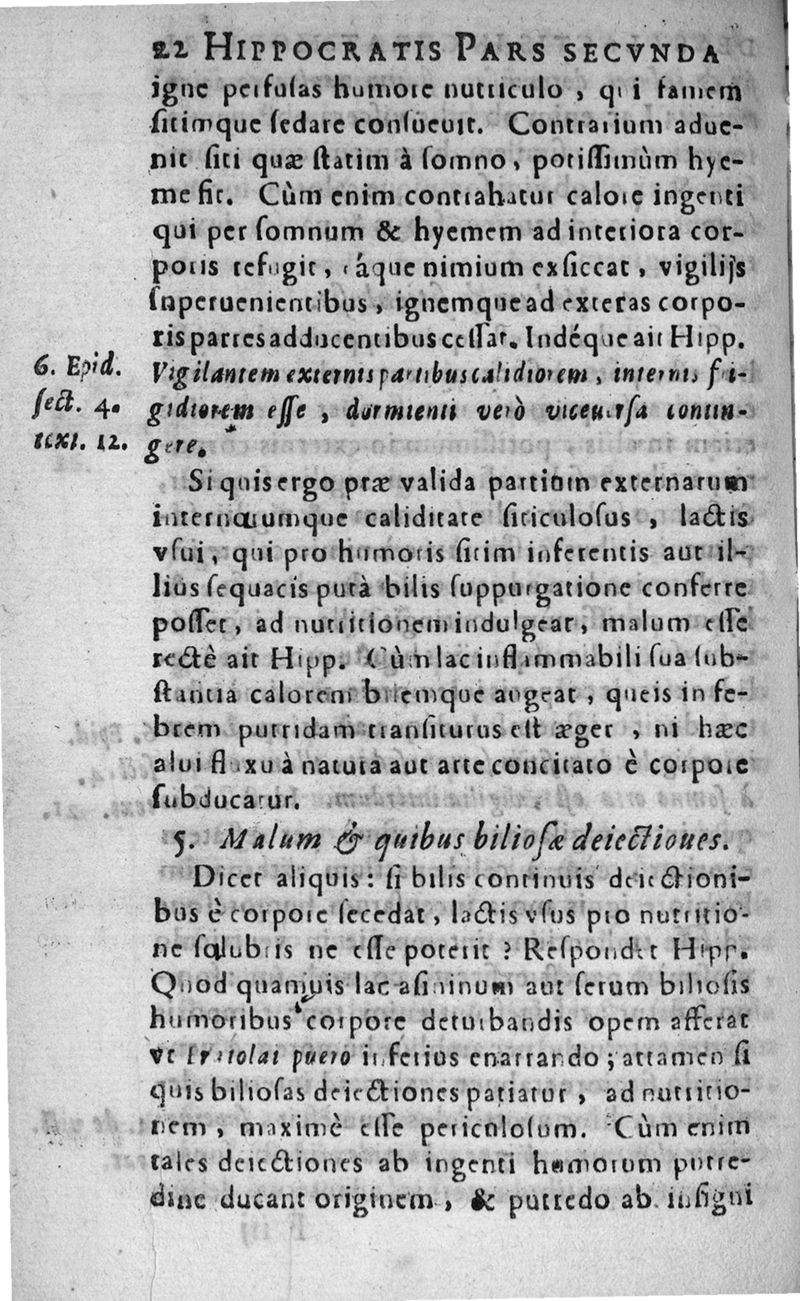 22 HIPPOCRATIS PARS SECVNDA
igne perfuſas humore nutriculo , qui famem
ſitimque ſedare conſueuit. Contrarium adue-
nit ſiti quæ ſtatim à ſomno, potiſſimùm hye-
me fit. Cùm enim contrahatur calore ingenti
qui per ſomnum & hyemem ad interiora cor-
poris refugit, eáque nimium exſiccat, vigilijs
ſuperuenientibus, ignemque ad exteras corpo-
ris partes adducentibus ceſſat. Indéque ait Hipp.
6. Epid.
ſect. 4.
text. 12.
Vigilantem externis partibus calidiorem, internis fri-
gidiorem eſſe , dormienti verò viceuerſa contin-
gere.
Si quis ergo præ valida partium externarum
internarumque caliditate ſiticuloſus , lactis
vſui, qui pro humoris ſitim inferentis aut il-
lius ſequacis putà bilis ſuppurgatione conferre
poſſet, ad nutritionem indulgeat, malum eſſe
rectè ait Hipp. Cùm lac inflammabili ſua ſub-
ſtantia calorem bilemque augeat , queis in fe-
brem putridam tranſiturus eſt æger , ni hæc
alui fluxu à natura aut arte concitato è corpore
ſubducatur.
5. Malum & quibus bilioſæ deiectioues.
Dicet aliquis: ſi bilis continuis deiectioni-
bus è corpore ſecedat, lactis vſus pro nutritio-
ne ſalubris ne eſſe poterit ? Reſpondet Hipp.
Quod quamuis lac aſininum aut ſerum bilioſis
humoribus corpore deturbandis opem afferat
vt puero inferius enarrando; attamen ſi
quis bilioſas deiectiones patiatur , ad nutritio-
nem , maximè eſſe periculoſum. Cùm enim
tales deiectiones ab ingenti humorum putre-
dine ducant originem , & putredo ab inſigni